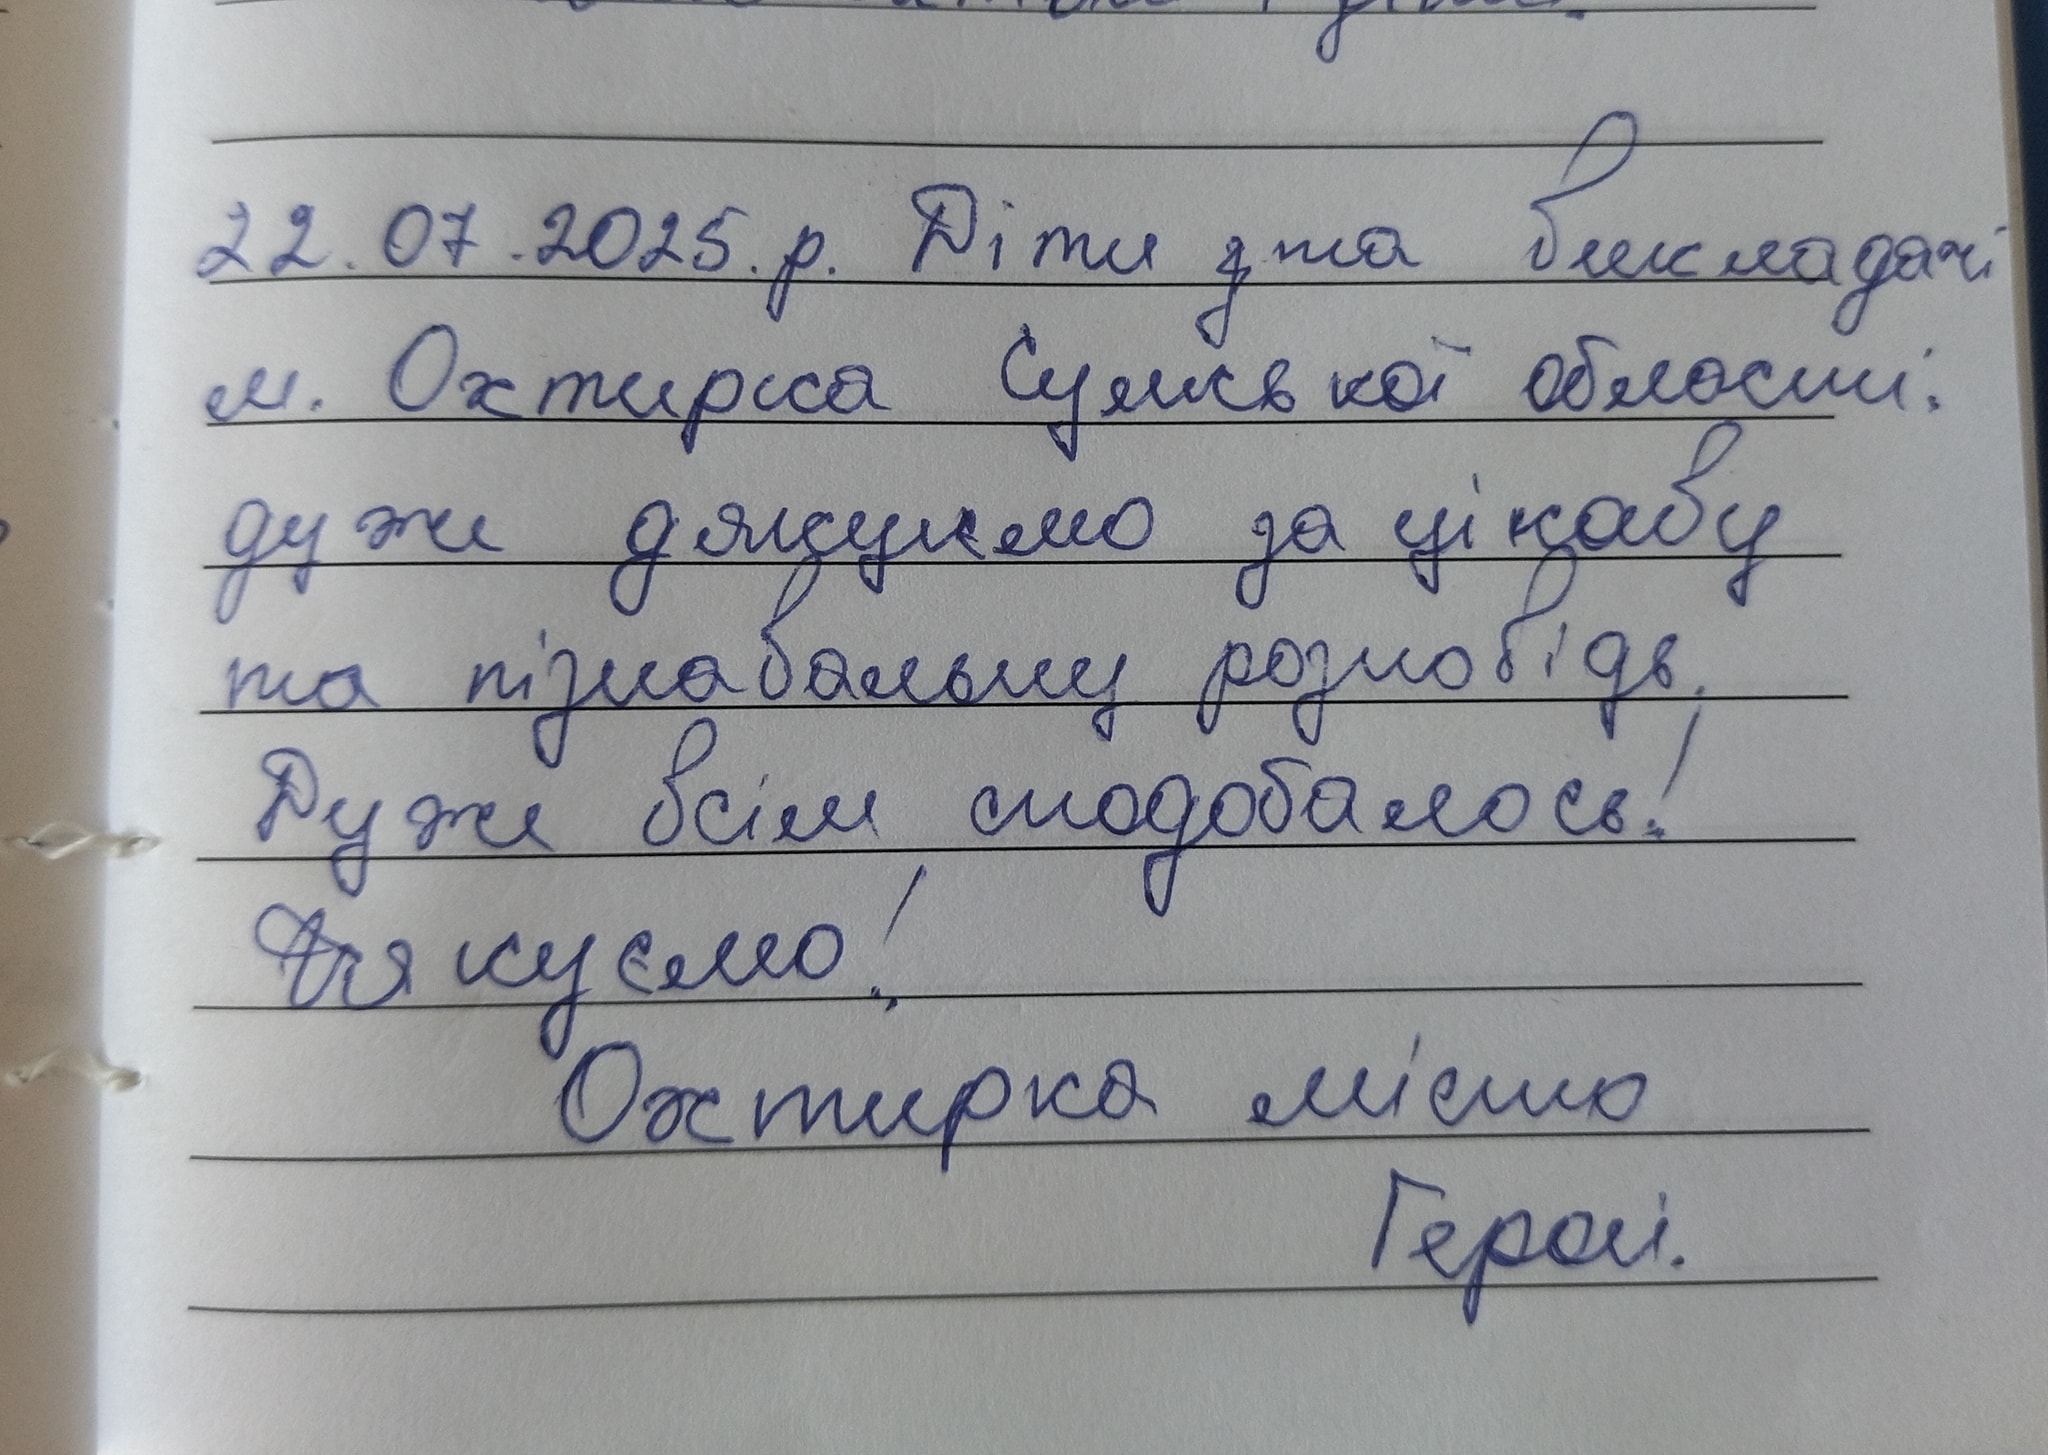 22.07.2025.р. Діти та викладачі
м. Охтирка Сумської області.
дуже дякуємо за цікаву
та пізнавальну розповідь.
Дуже всім сподобалось!
Дякуємо!
Охтирка місто
Герої.